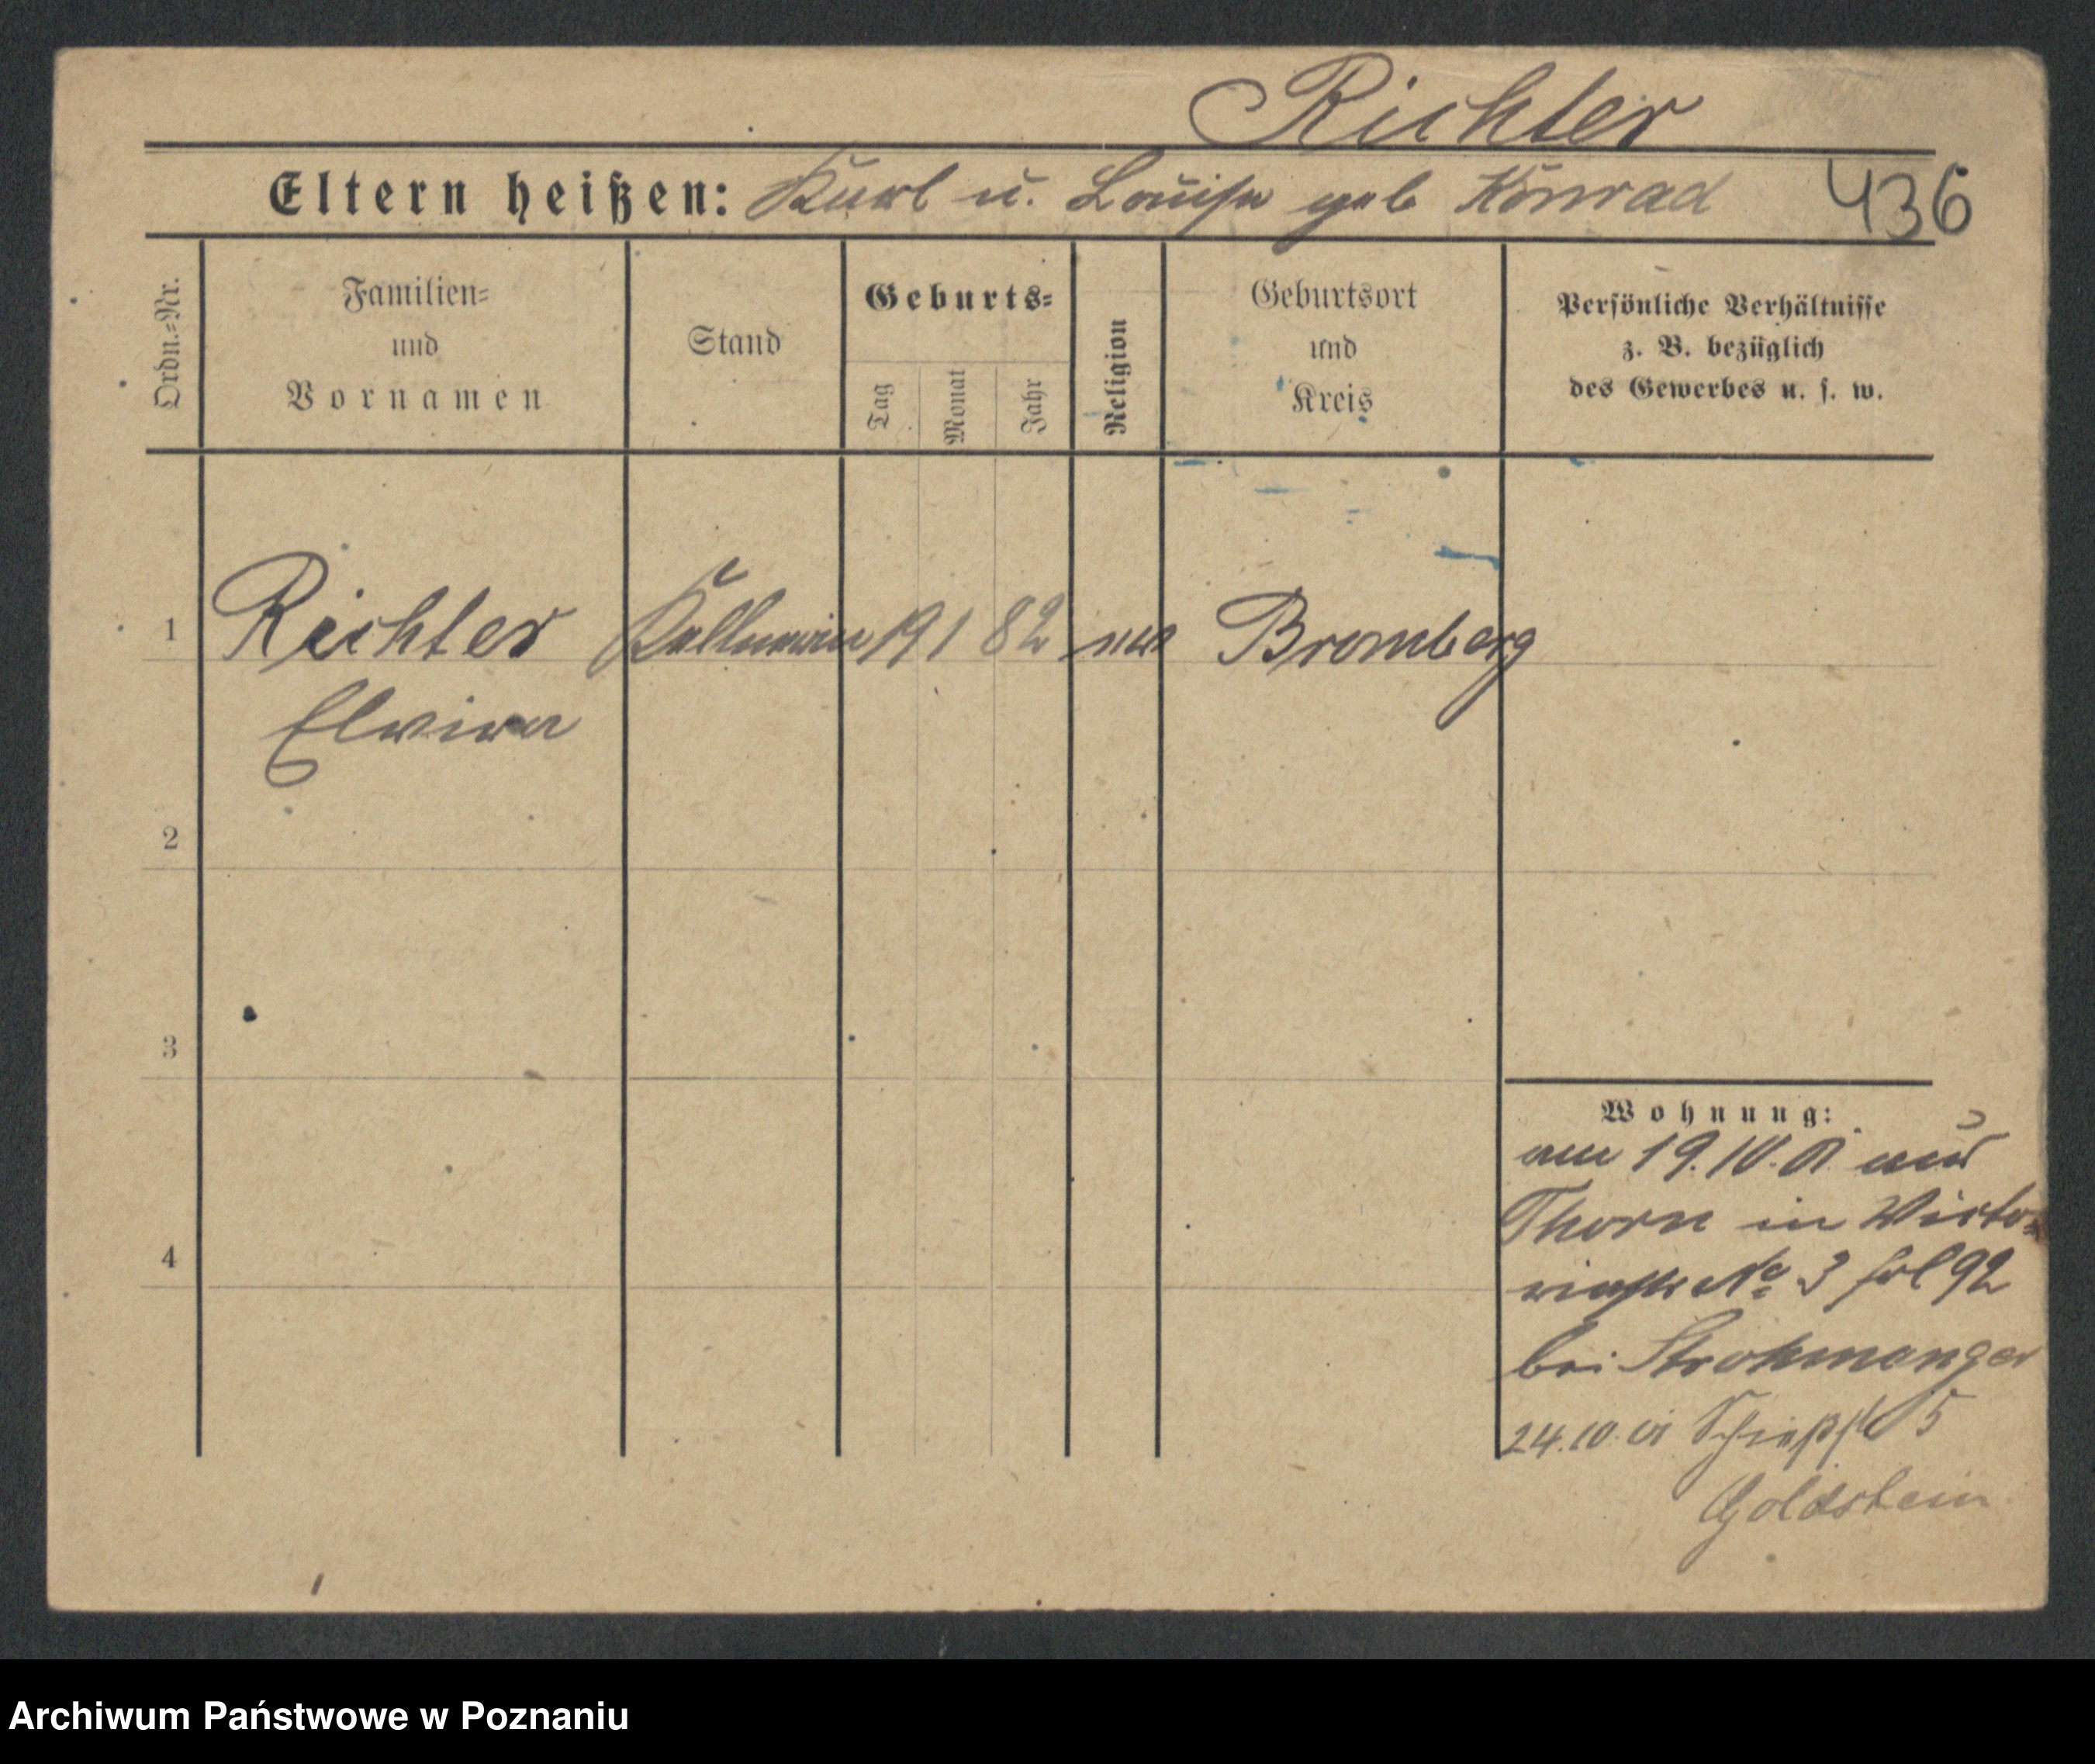 Richter
Eltern heißen: Karl u. Louise geb Konrad 436
Ordn.=Nr.
Familien=
und
Vornamen
Stand
Geburts=
Tag
Monat
Jahr
Religion
Geburtsort
und
Kreis
Persönliche Verhältnisse
z. B. bezüglich
des Gewerbes u. s. w.
1 Richter Kellnerin 19 1 82 Bromberg
Elvira
2
3
4
Wohnung:
am 19.10.01 aus
Thorn in Victo=
No 3 92
bei Strohmanger
24.10.01 Schießstr 5
Goldstein
Archiwum Państwowe w Poznaniu